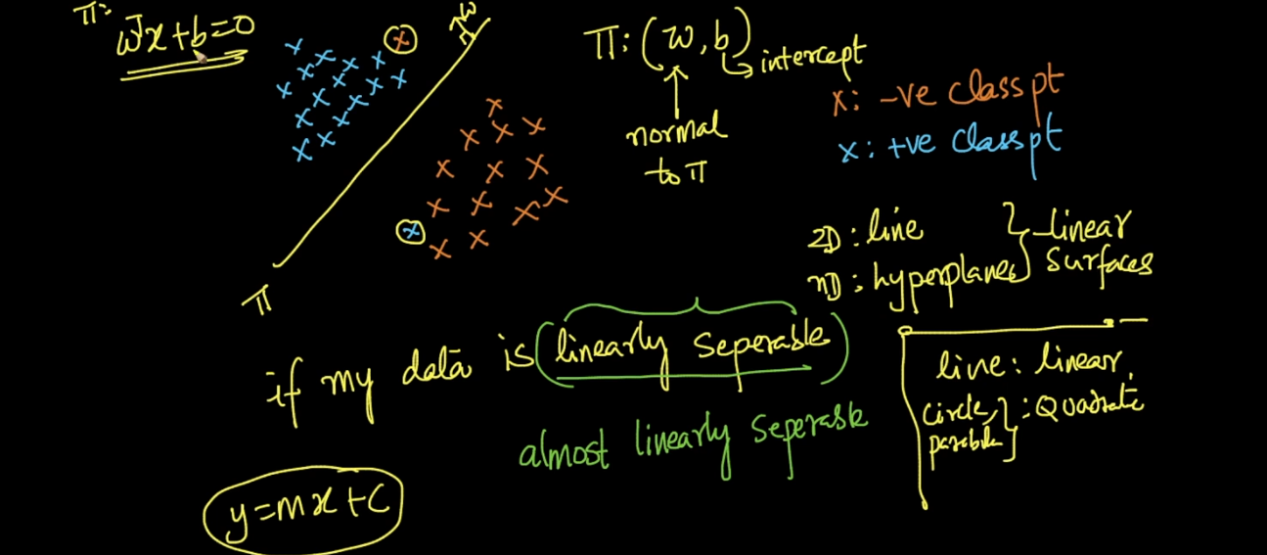 π:
wᵀx+b=0
w
π: (w, b)
intercept
normal
to π
x: -ve class pt
x: +ve class pt
π
2D: line
nD: hyperplane
linear
surfaces
if my data is (linearly seperable)
almost linearly seperable
line: linear.
circle,
parabola
: Quadratic
y=mx+c